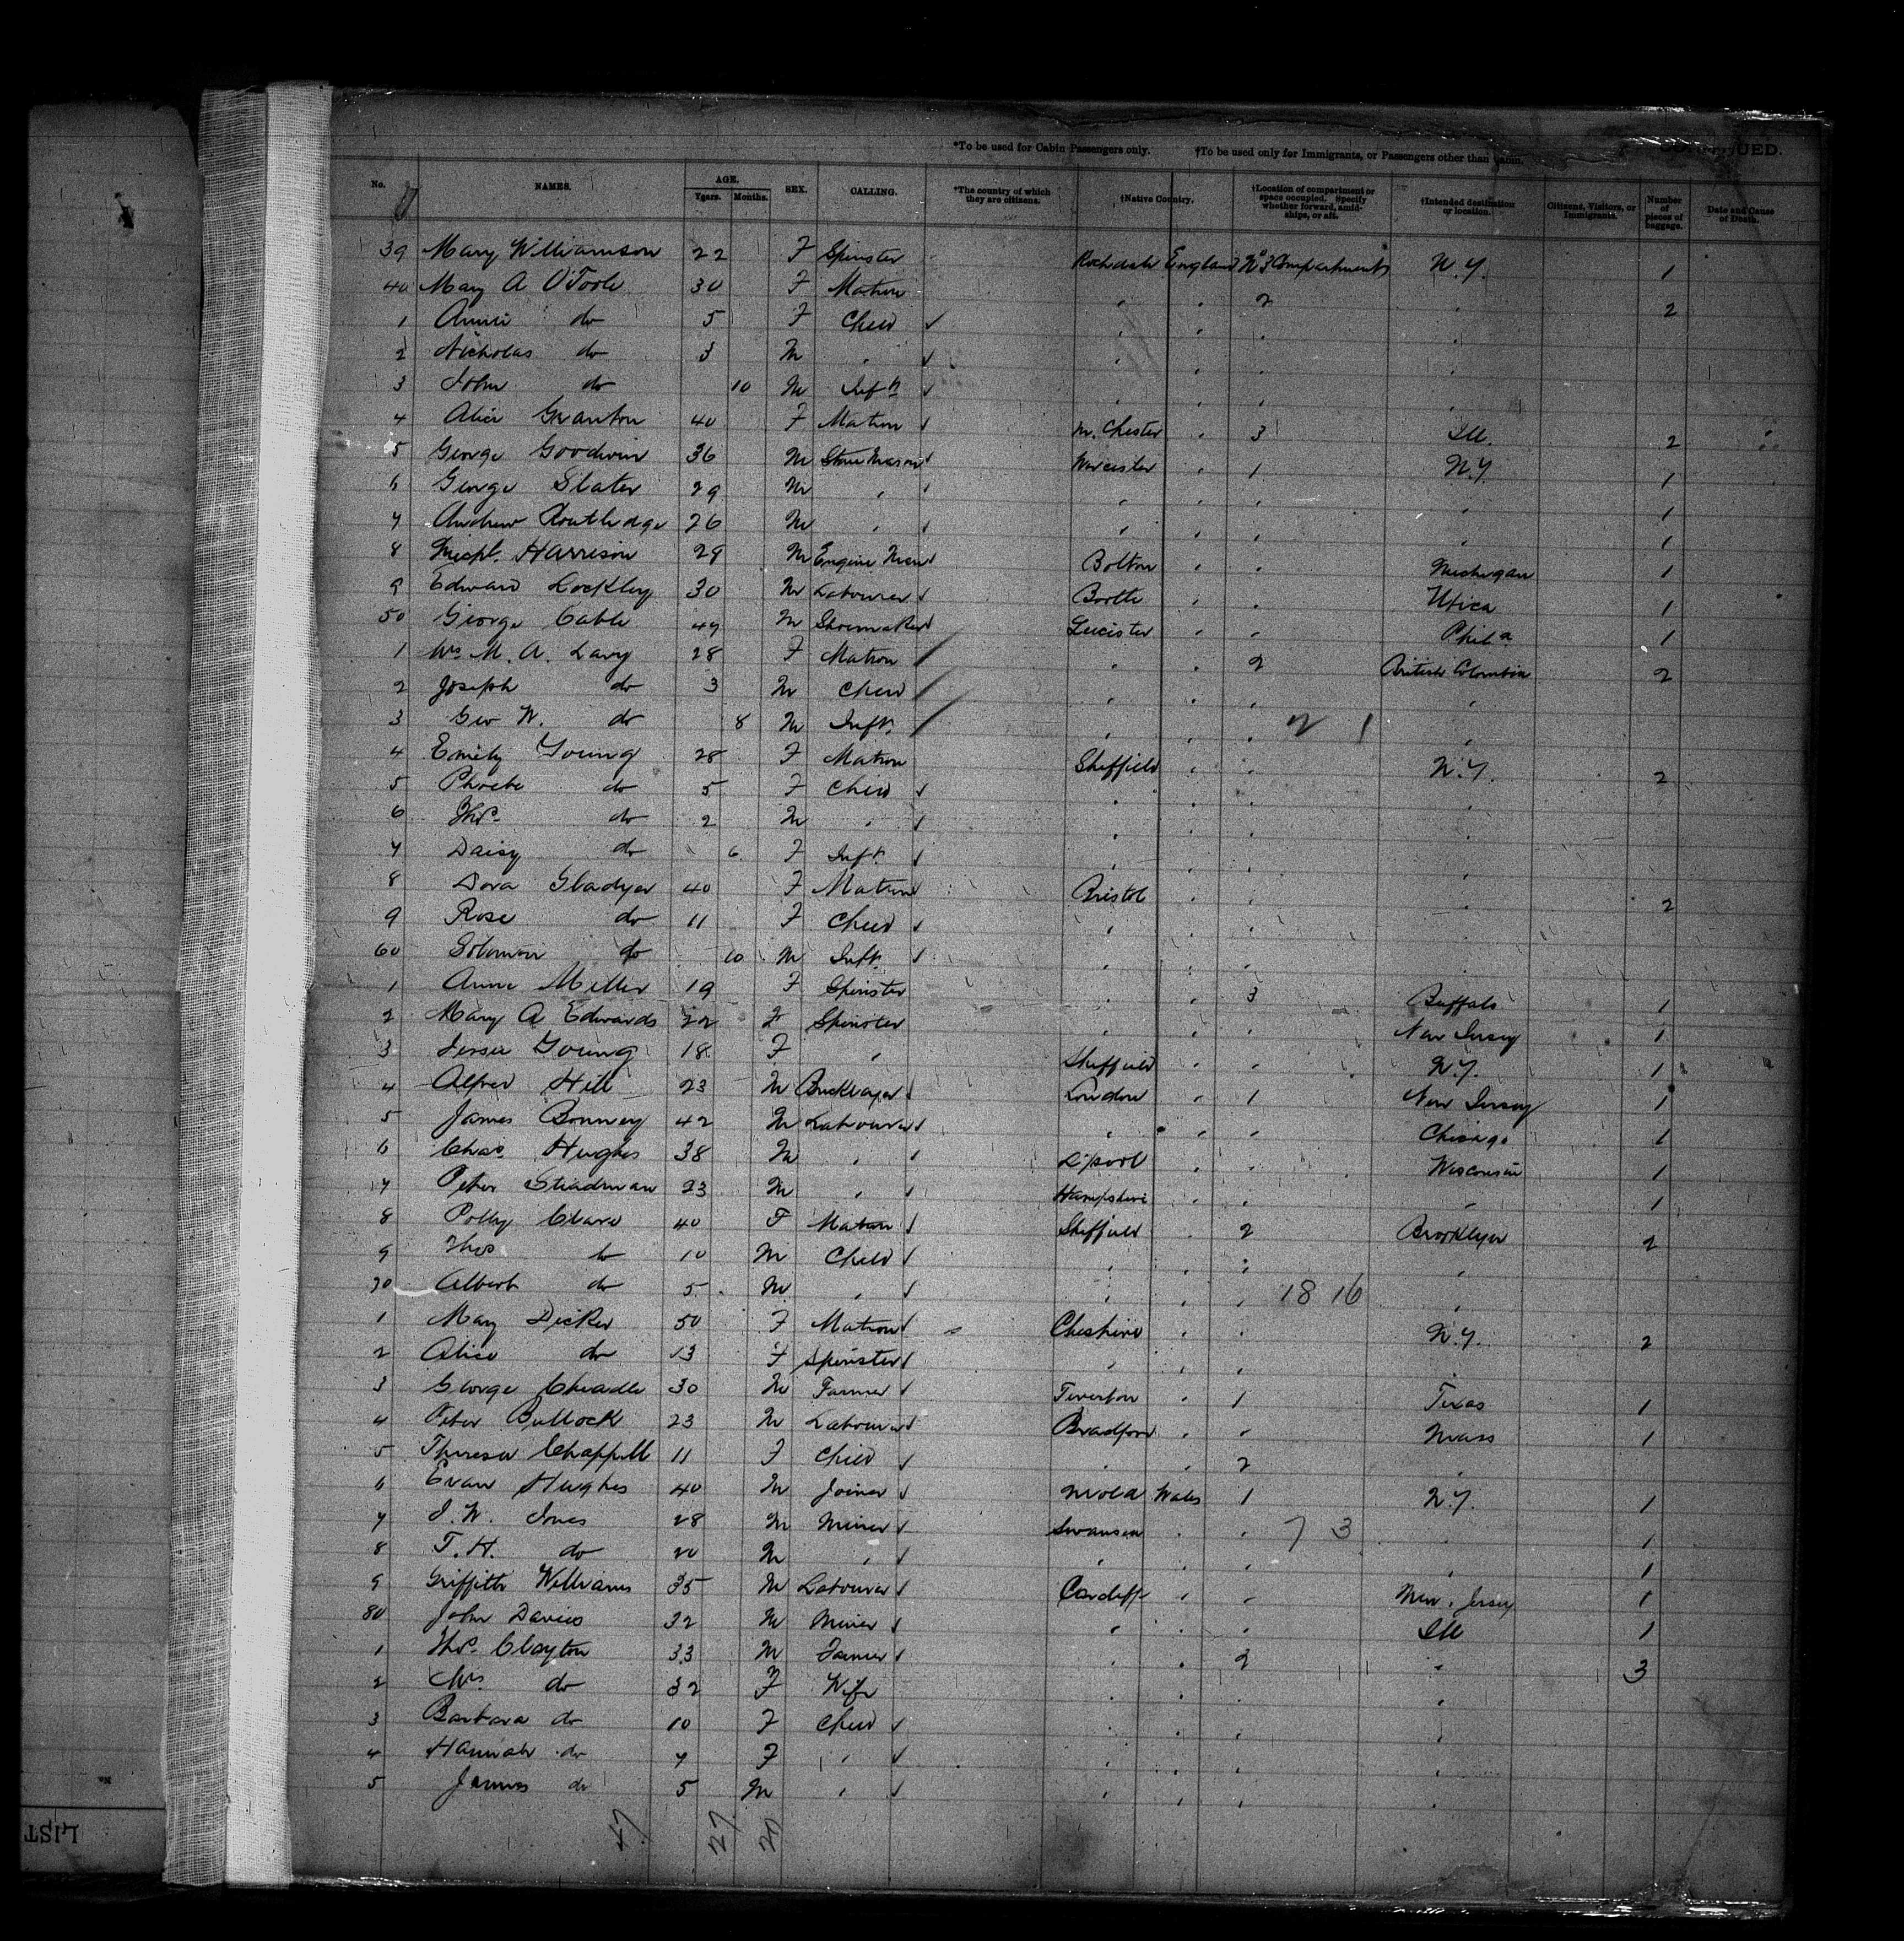 CONTINUED.
*To be used for Cabin Passengers only. †To be used only for Immigrants, or Passengers other than Cabin.
No. NAMES. AGE. Years. Months. SEX. CALLING. *The country of which they are citizens. †Native Country. †Location of compartment or space occupied. Specify whether forward, amidships, or aft. †Intended destination or location. Citizens, Visitors, or Immigrants. Number of pieces of baggage. Date and Cause of Death.
39 Mary Williamson 22 F Spinster Rochdale England No 3 Compartments N.Y. 1
40 Mary A O'Toole 30 F Matron " " 2 " 2
1 Annie do 5 F Child " " " "
2 Nicholas do 3 M " " " " "
3 John do 10 M Inft " " " "
4 Alice Granton 40 F Matron M. Chester " 3 Ill. 2
5 George Goodwin 36 M Stone Mason Worcester " 1 N.Y. 1
6 George Slater 29 M " " " " " 1
7 Andrew Routledge 26 M " " " " " 1
8 Harrison 28 M Engine Man Bolton " " Michigan 1
9 Edward Lockley 30 M Labourer Bootle " " Utica 1
50 George Cable 49 M Shoemaker Leicister " " Phila 1
1 Mrs M. A. Lavy 28 F Matron " " 2 British Colombia 2
2 Joseph do 3 M Child " " " "
3 Geo W. do 8 M Inft. " " " 2 1 "
4 Emily Young 28 F Matron Sheffield " " N.Y. 2
5 Phoebe do 5 F Child " " " "
6 Thos do 2 M " " " " "
7 Daisy do 6 F Inft. " " " "
8 Dora Gladyer 40 F Matron Bristol " " " 2
9 Rose do 11 F Child " " " "
60 Solomon do 10 M Inft. " " " "
1 Anne Miller 19 F Spinster " " 3 Buffalo 1
2 Mary A Edwards 22 F Spinster " " " New Jersey 1
3 Jessie Young 18 F " Sheffield " " N.Y. 1
4 Alfred Hill 23 M Bricklayer London " 1 New Jersey 1
5 James Bonney 42 M Labourer " " " Chicago 1
6 Chas Hughes 38 M " L'pool " " Wisconsin 1
7 Peter Steadman 23 M " Hampshire " " " 1
8 Polly Clare 40 F Matron Sheffield " 2 Brooklyn 2
9 Thos do 10 M Child " " " "
70 Albert do 5 M " " " " 18 16 "
1 Mary Dicker 50 F Matron Cheshire " " N.Y. 2
2 Alice do 13 F Spinster " " " "
3 George Cheadle 30 M Farmer Tiverton " 1 Texas 1
4 Peter Bullock 23 M Labourer Bradford " " Mass 1
5 Theresa Chappell 11 F Child " " 2 "
6 Evan Hughes 40 M Joiner Mold Wales 1 N.Y. 1
7 J. W. Jones 28 M Miner Swansea " " 7 3 " 1
8 T. H. do 20 M " " " " " 1
9 Griffith Williams 35 M Labourer Cardiff " " New Jersey 1
80 John Davies 32 M Miner " " " Ill 1
1 Thos Clayton 33 M Farmer " " 2 " 3
2 Mrs do 32 F Wife " " " "
3 Barbara do 10 F Child " " " "
4 Hannah do 7 F " " " " "
5 James do 5 M " " " " "
47 27 20
LIST